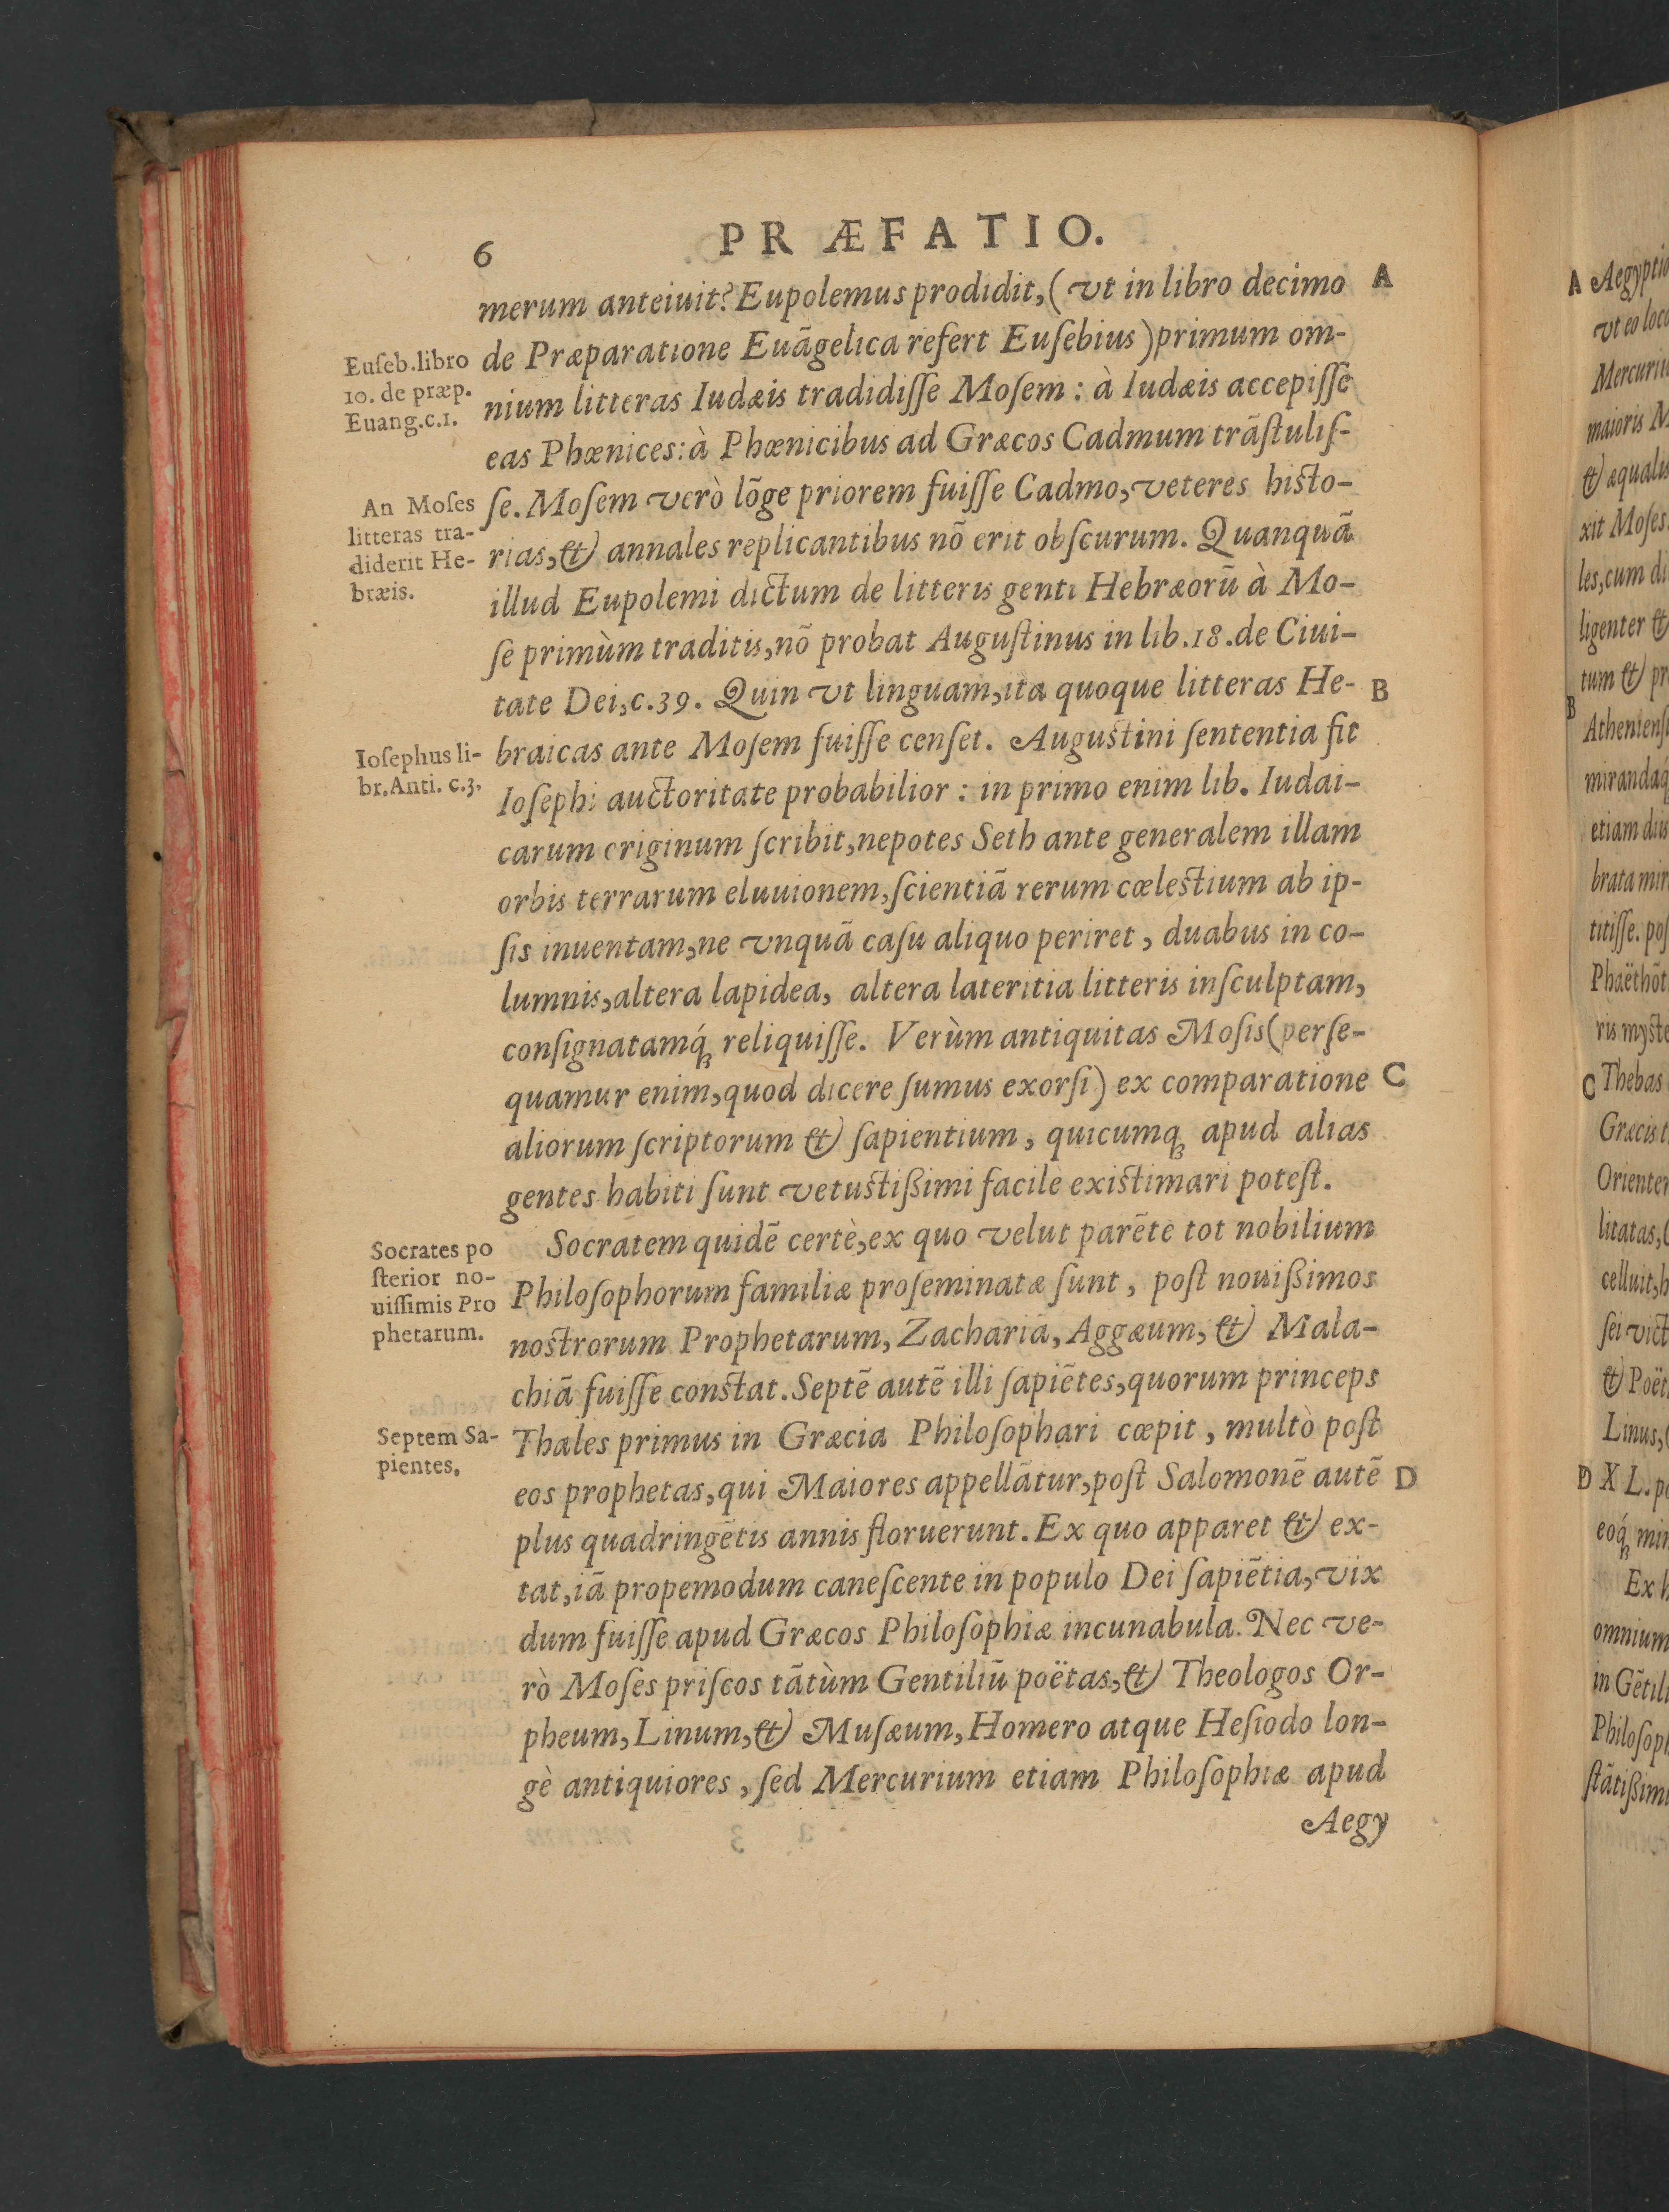 6
PRÆFATIO.
merum anteiuit? Eupolemus prodidit, (vt in libro decimo
A
de Præparatione Euãgelica refert Euſebius) primum om-
nium litteras Iudæis tradidiſſe Moſem : à Iudæis accepiſſe
eas Phœnices: à Phœnicibus ad Græcos Cadmum trãſtuliſ-
ſe. Moſem verò lõge priorem fuiſſe Cadmo, veteres hiſto-
rias, & annales replicantibus nõ erit obſcurum. Quanquã
illud Eupolemi dictum de litteris genti Hebræorũ à Mo-
ſe primùm traditis, nõ probat Auguſtinus in lib.18.de Ciui-
tate Dei, c.39. Quin vt linguam, ita quoque litteras He-
B
braicas ante Moſem fuiſſe cenſet. Auguſtini ſententia fit
Ioſephi auctoritate probabilior : in primo enim lib. Iudai-
carum originum ſcribit, nepotes Seth ante generalem illam
orbis terrarum eluuionem, ſcientiã rerum cœleſtium ab ip-
ſis inuentam, ne vnquã caſu aliquo periret, duabus in co-
lumnis, altera lapidea, altera lateritia litteris inſculptam,
conſignatamq́; reliquiſſe. Verùm antiquitas Moſis (perſe-
quamur enim, quod dicere ſumus exorſi) ex comparatione
C
aliorum ſcriptorum & ſapientium, quicumq; apud alias
gentes habiti ſunt vetuſtißimi facilè exiſtimari poteſt.
Socratem quidẽ certè, ex quo velut parẽte tot nobilium
Philoſophorum familiæ proſeminatæ ſunt, poſt nouißimos
noſtrorum Prophetarum, Zachariã, Aggæum, & Mala-
chiã fuiſſe conſtat. Septẽ autẽ illi ſapiẽtes, quorum princeps
Thales primus in Græcia Philoſophari cœpit, multò poſt
eos prophetas, qui Maiores appellãtur, poſt Salomonẽ autẽ
D
plus quadringẽtis annis floruerunt. Ex quo apparet & ex-
tat, iã propemodum caneſcente in populo Dei ſapiẽtia, vix
dum fuiſſe apud Græcos Philoſophiæ incunabula. Nec ve-
rò Moſes priſcos tãtùm Gentiliũ poëtas, & Theologos Or-
pheum, Linum, & Muſæum, Homero atque Heſiodo lon-
gè antiquiores, ſed Mercurium etiam Philoſophiæ apud
Aegy
Euſeb.libro
10. de præp.
Euang.c.1.
An Moſes
litteras tra-
diderit He-
bræis.
Ioſephus li-
br.Anti. c.3.
Socrates po
ſterior no-
uiſſimis Pro
phetarum.
Septem Sa-
pientes.
A Aegyptio
vt eo loco
Mercuriu
maioris M
& æqualis
xit Moſes
les, cum di
ligenter &
tum & pr
B
Athenienſi
mirandaq́
etiam diis
brata mir
titiſſe. poſ
Phaëthõt
ris myſte
C Thebas
Græcis t
Orienter
litatas, (
celluit, h
ſei vict
& Poët
Linus, (
D X L. p
eoq́; min
Ex h
omnium
in Gẽtili
Philoſoph
ſtãtißim